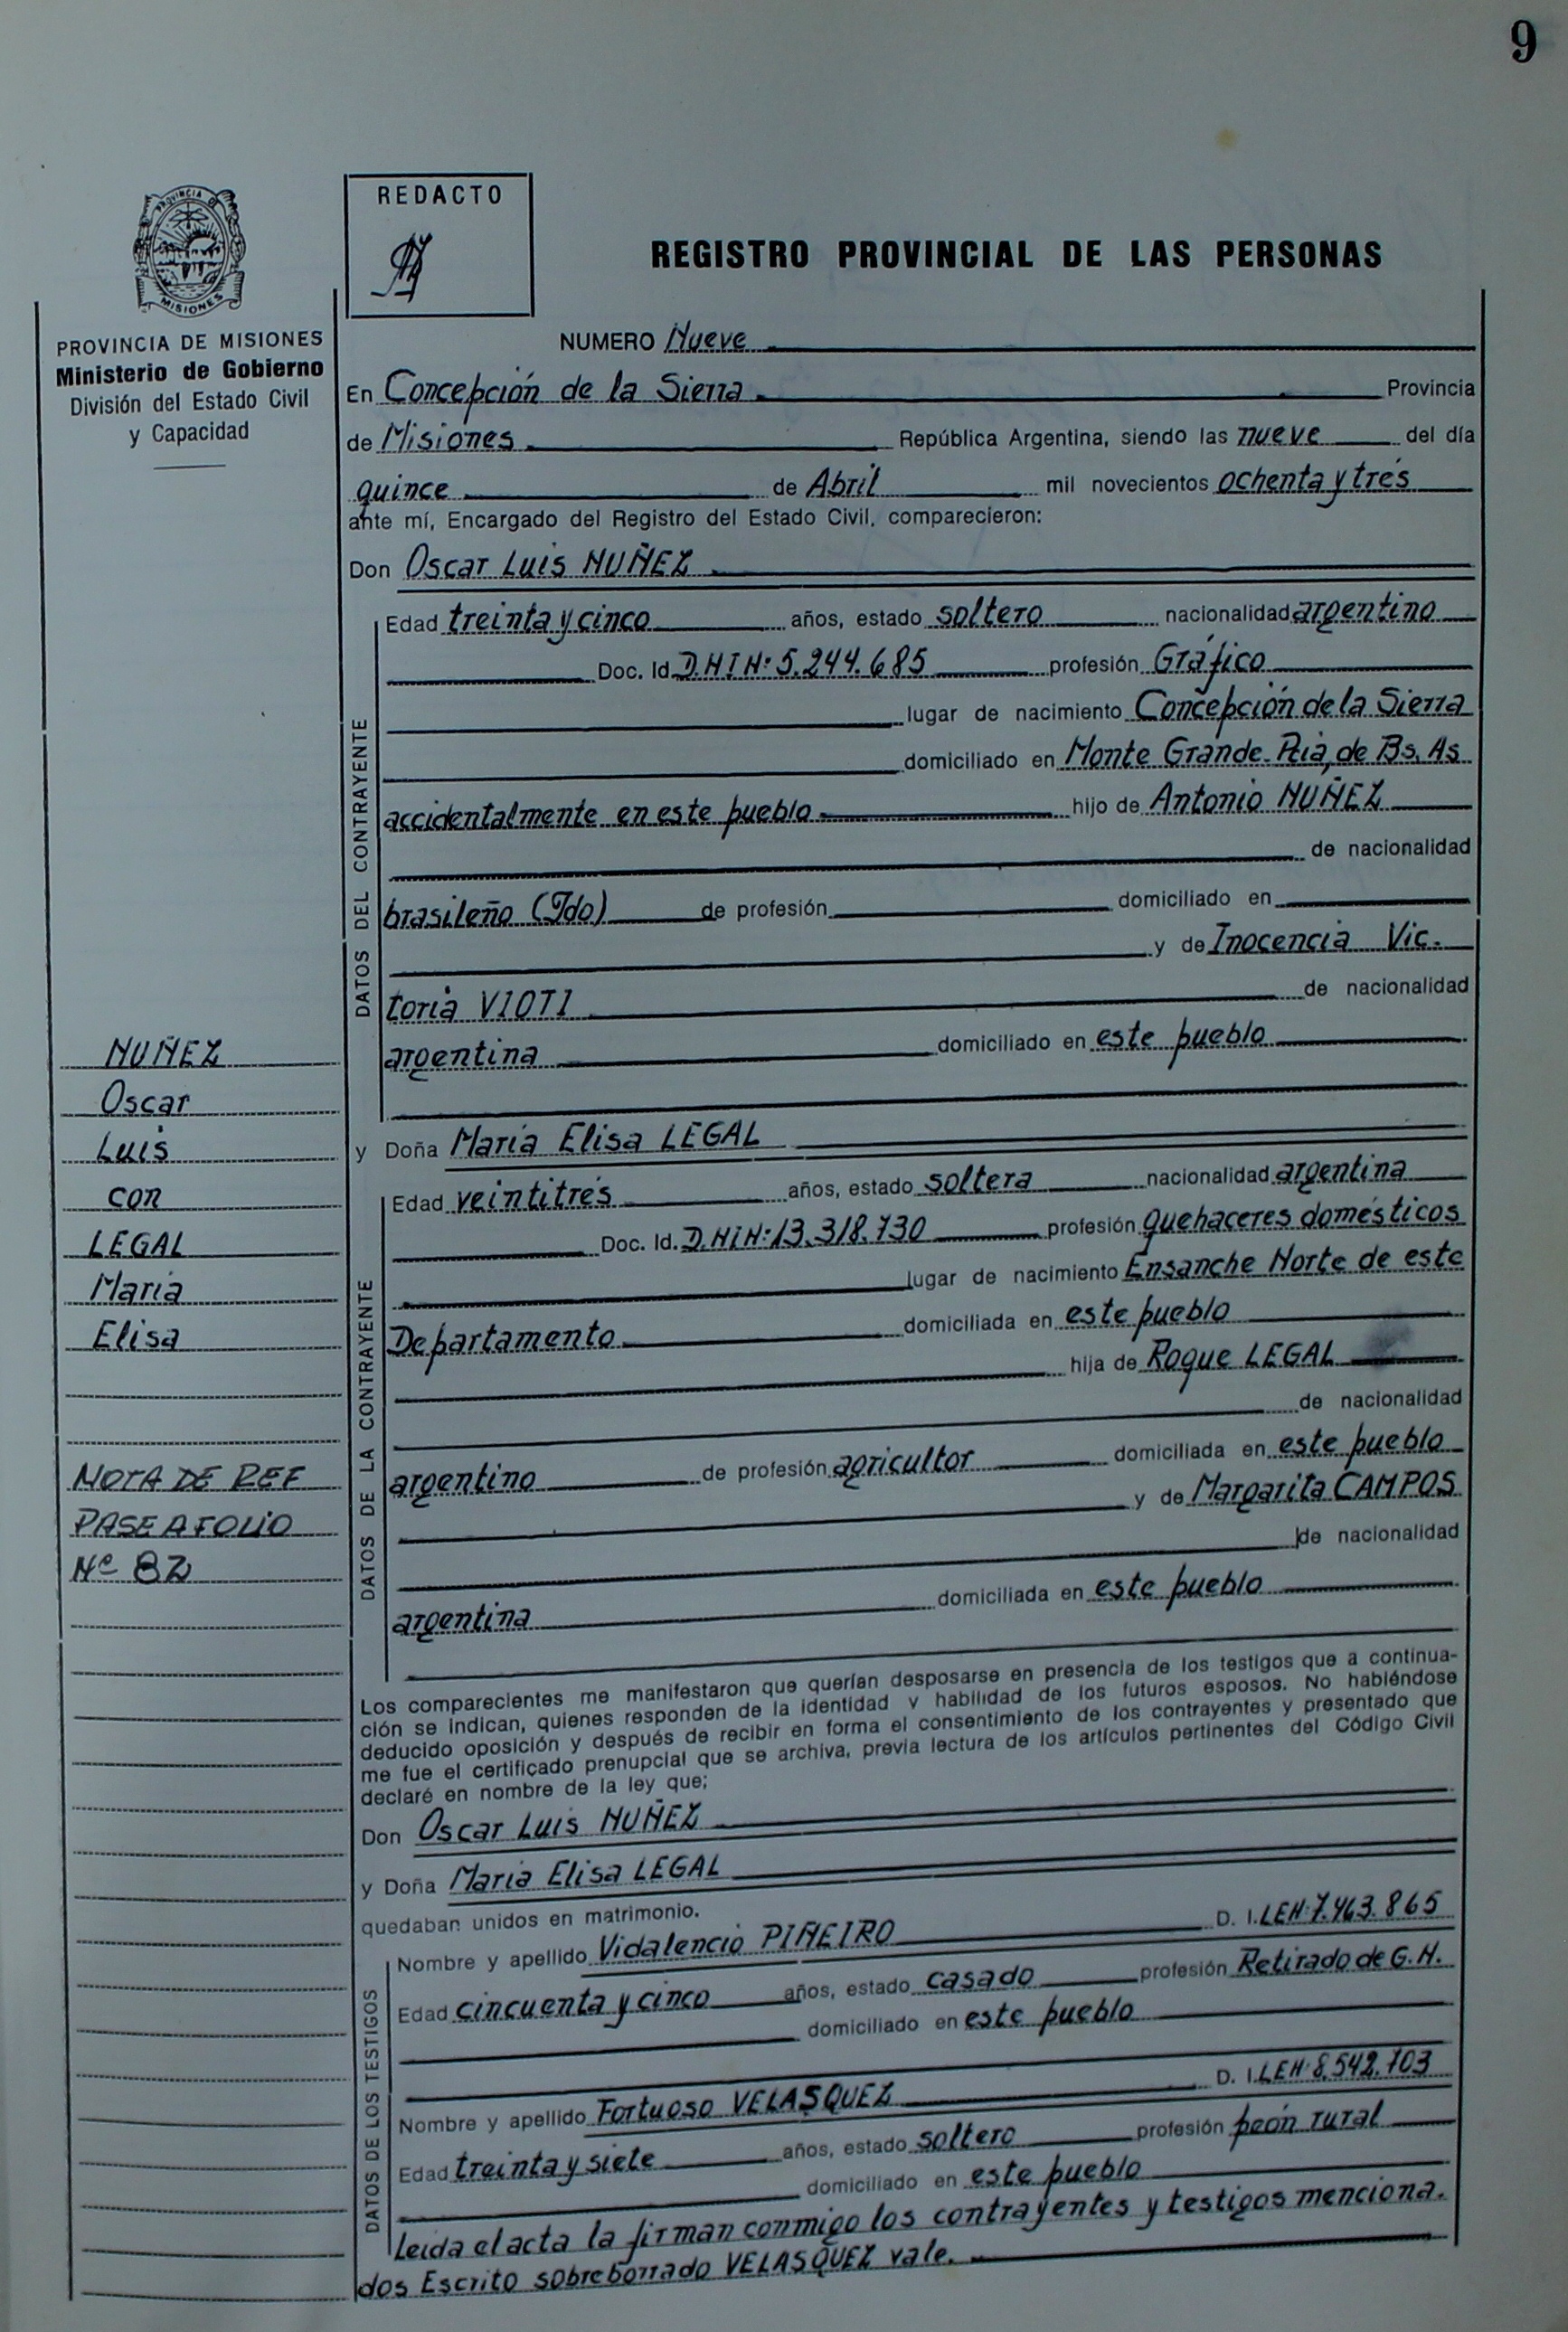 9
PROVINCIA DE
MISIONES
PROVINCIA DE MISIONES
Ministerio de Gobierno
División del Estado Civil
y Capacidad
REDACTO
REGISTRO PROVINCIAL DE LAS PERSONAS
NUMERO Nueve
En Concepción de la Sierra Provincia
de Misiones República Argentina, siendo las nueve del día
quince de Abril mil novecientos ochenta y tres
ante mí, Encargado del Registro del Estado Civil, comparecieron:
Don Oscar Luis NUÑEZ
DATOS DEL CONTRAYENTE
Edad treinta y cinco años, estado soltero nacionalidad argentino
Doc. Id. D.N I N: 5.244.685 profesión Gráfico
lugar de nacimiento Concepción de la Sierra
domiciliado en Monte Grande-Pcia, de Bs. As
accidentalmente en este pueblo hijo de Antonio NUÑEZ
de nacionalidad
brasileño (Fdo) de profesión domiciliado en
y de Inocencia Vic-
toria VIOTI de nacionalidad
argentina domiciliado en este pueblo
NUÑEZ
Oscar
Luis
con
LEGAL
Maria
Elisa
NOTA DE REF
PASE A FOLIO
Nº 82
y Doña Maria Elisa LEGAL
DATOS DE LA CONTRAYENTE
Edad veintitres años, estado soltera nacionalidad argentina
Doc. Id. D.N i N: 13.318.730 profesión quehaceres domésticos
lugar de nacimiento Ensanche Norte de este
Departamento domiciliada en este pueblo
hija de Roque LEGAL
de nacionalidad
argentino de profesión agricultor domiciliada en este pueblo
y de Margarita CAMPOS
de nacionalidad
argentina domiciliada en este pueblo
Los comparecientes me manifestaron que querían desposarse en presencia de los testigos que a continua-
ción se indican, quienes responden de la identidad y habilidad de los futuros esposos. No habiéndose
deducido oposición y después de recibir en forma el consentimiento de los contrayentes y presentado que
me fue el certificado prenupcial que se archiva, previa lectura de los artículos pertinentes del Código Civil
declaré en nombre de la ley que;
Don Oscar Luis NUÑEZ
y Doña Maria Elisa LEGAL
quedaban unidos en matrimonio.
DATOS DE LOS TESTIGOS
Nombre y apellido Vidalencio PIÑEIRO D. I. LEN: 7.463.865
Edad cincuenta y cinco años, estado casado profesión Retirado de G.N.
domiciliado en este pueblo
Nombre y apellido Fortuoso VELASQUEZ D. I. LEN: 8.542.703
Edad treinta y siete años, estado soltero profesión peón rural
domiciliado en este pueblo
Leida el acta la firman conmigo los contrayentes y testigos menciona-
dos Escrito sobreborrado VELASQUEZ vale.